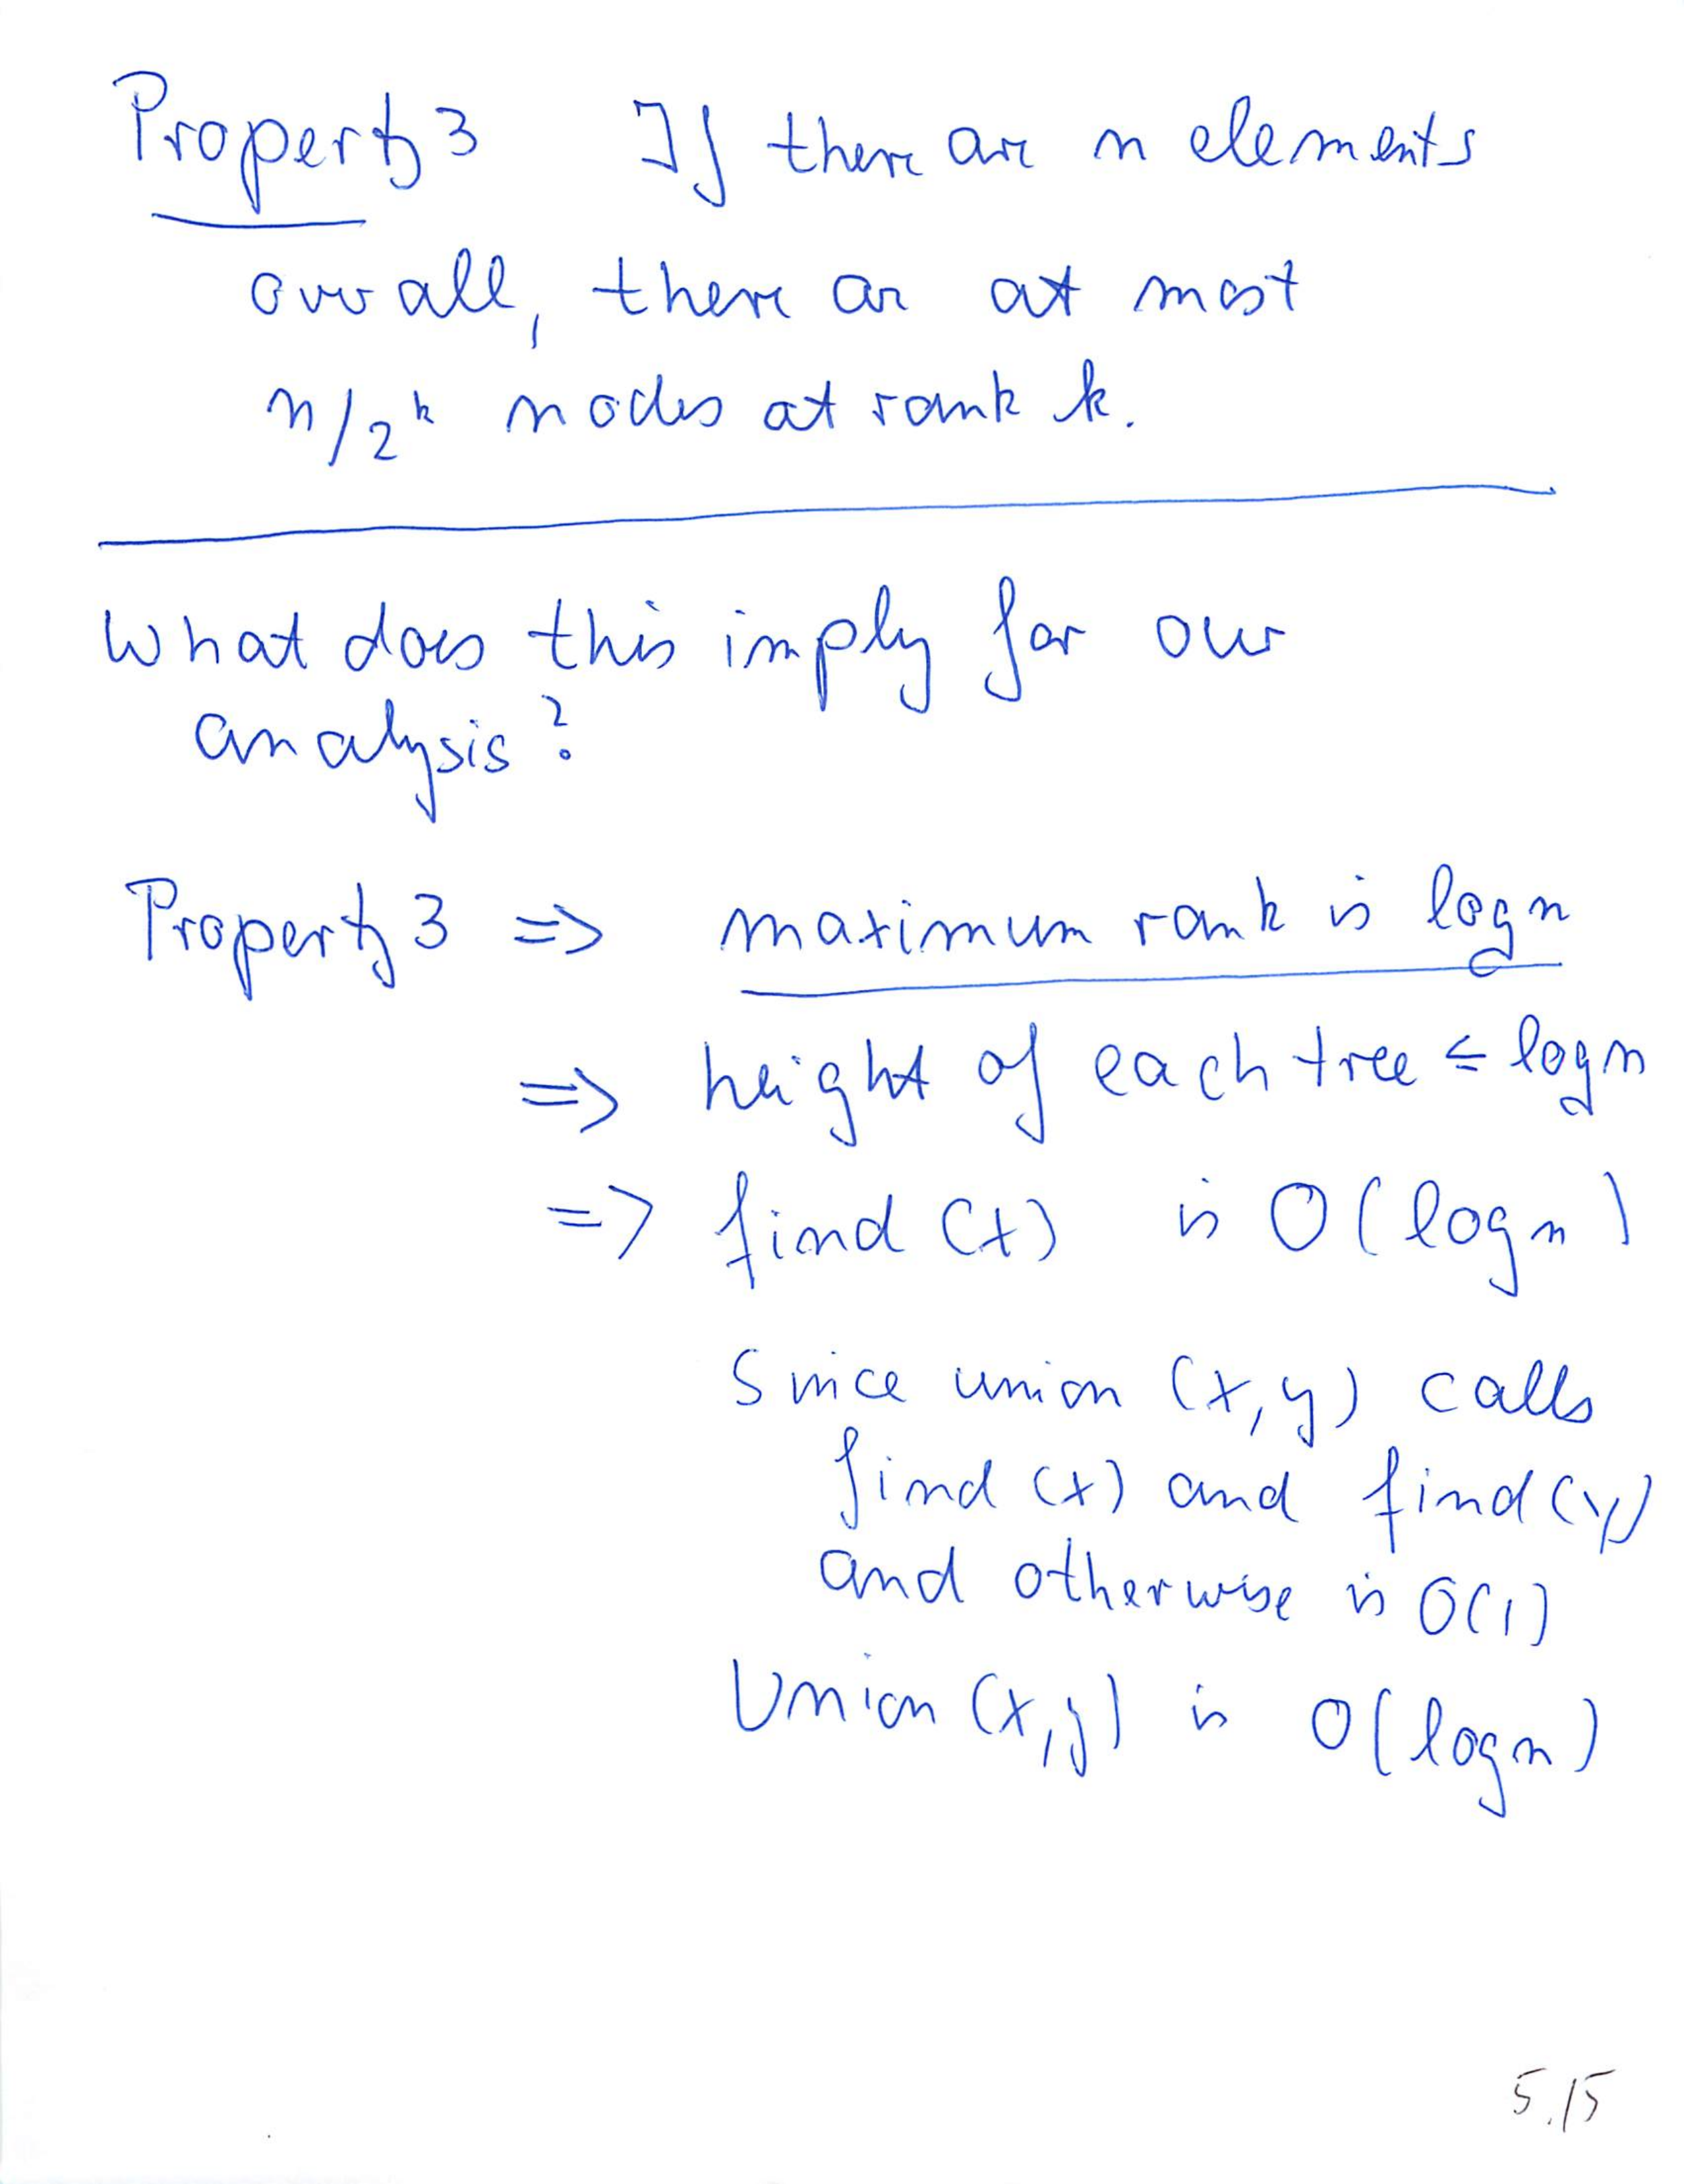 Property 3 If there are n elements
overall, there are at most
n/2^k nodes at rank k.
What does this imply for our
analysis?
Property 3 => maximum rank is log n
=> height of each tree ≤ log n
=> find (x) is O(log n)
Since union (x,y) calls
find (x) and find (y)
and otherwise is O(1)
Union (x,y) is O(log n)
5.15